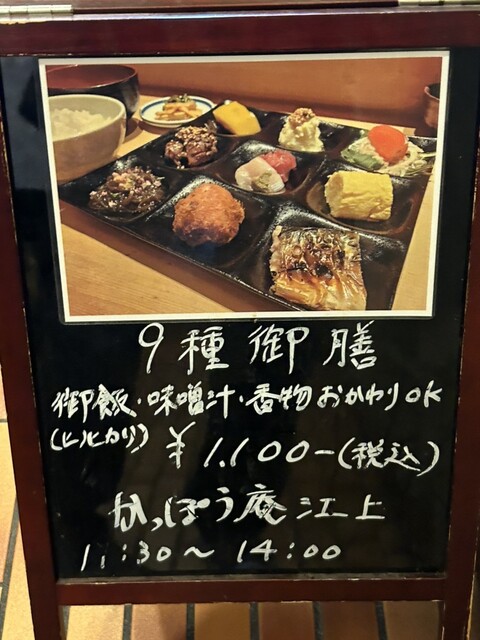 9種御膳
御飯・味噌汁・香物おかわりOK
(ヒノヒカリ)
¥1,100-(税込)
かっぽう庵江上
11:30～14:00